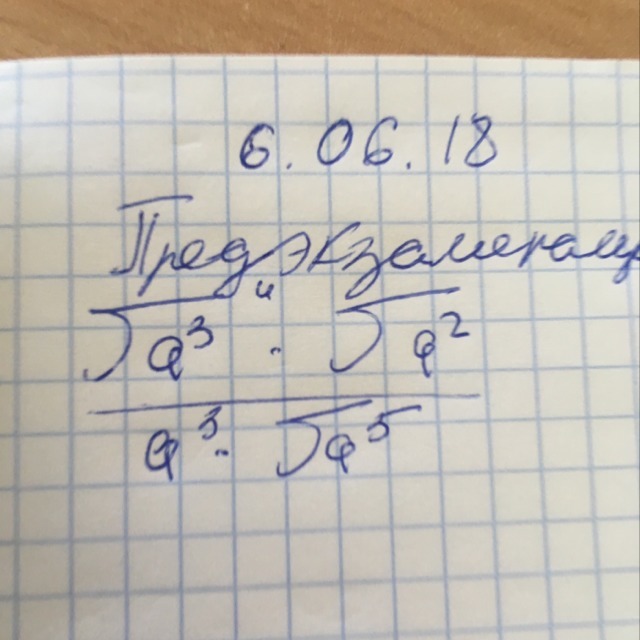 6.06.18
Предэкзаменац
√a³ · √a²
a³ · √a⁵